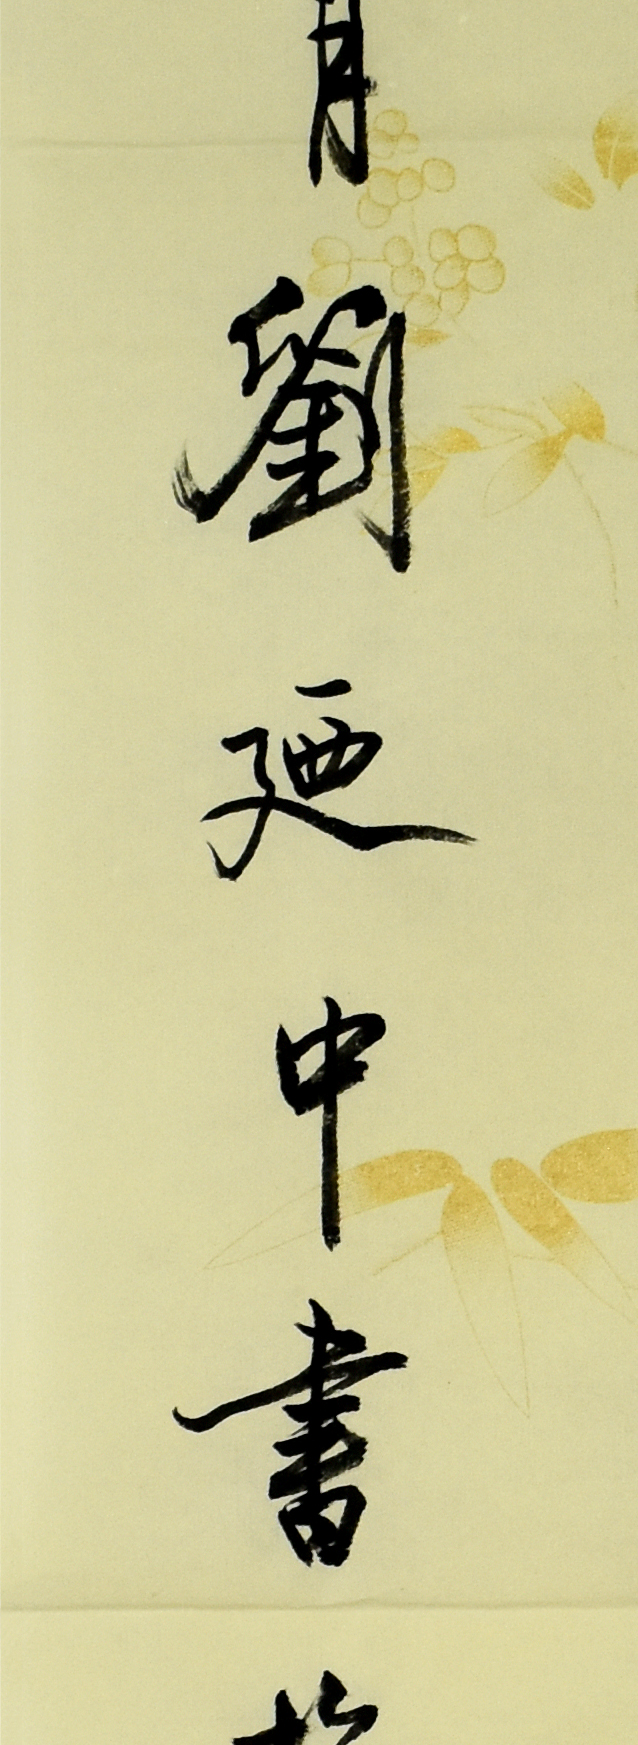 月劉廼中書